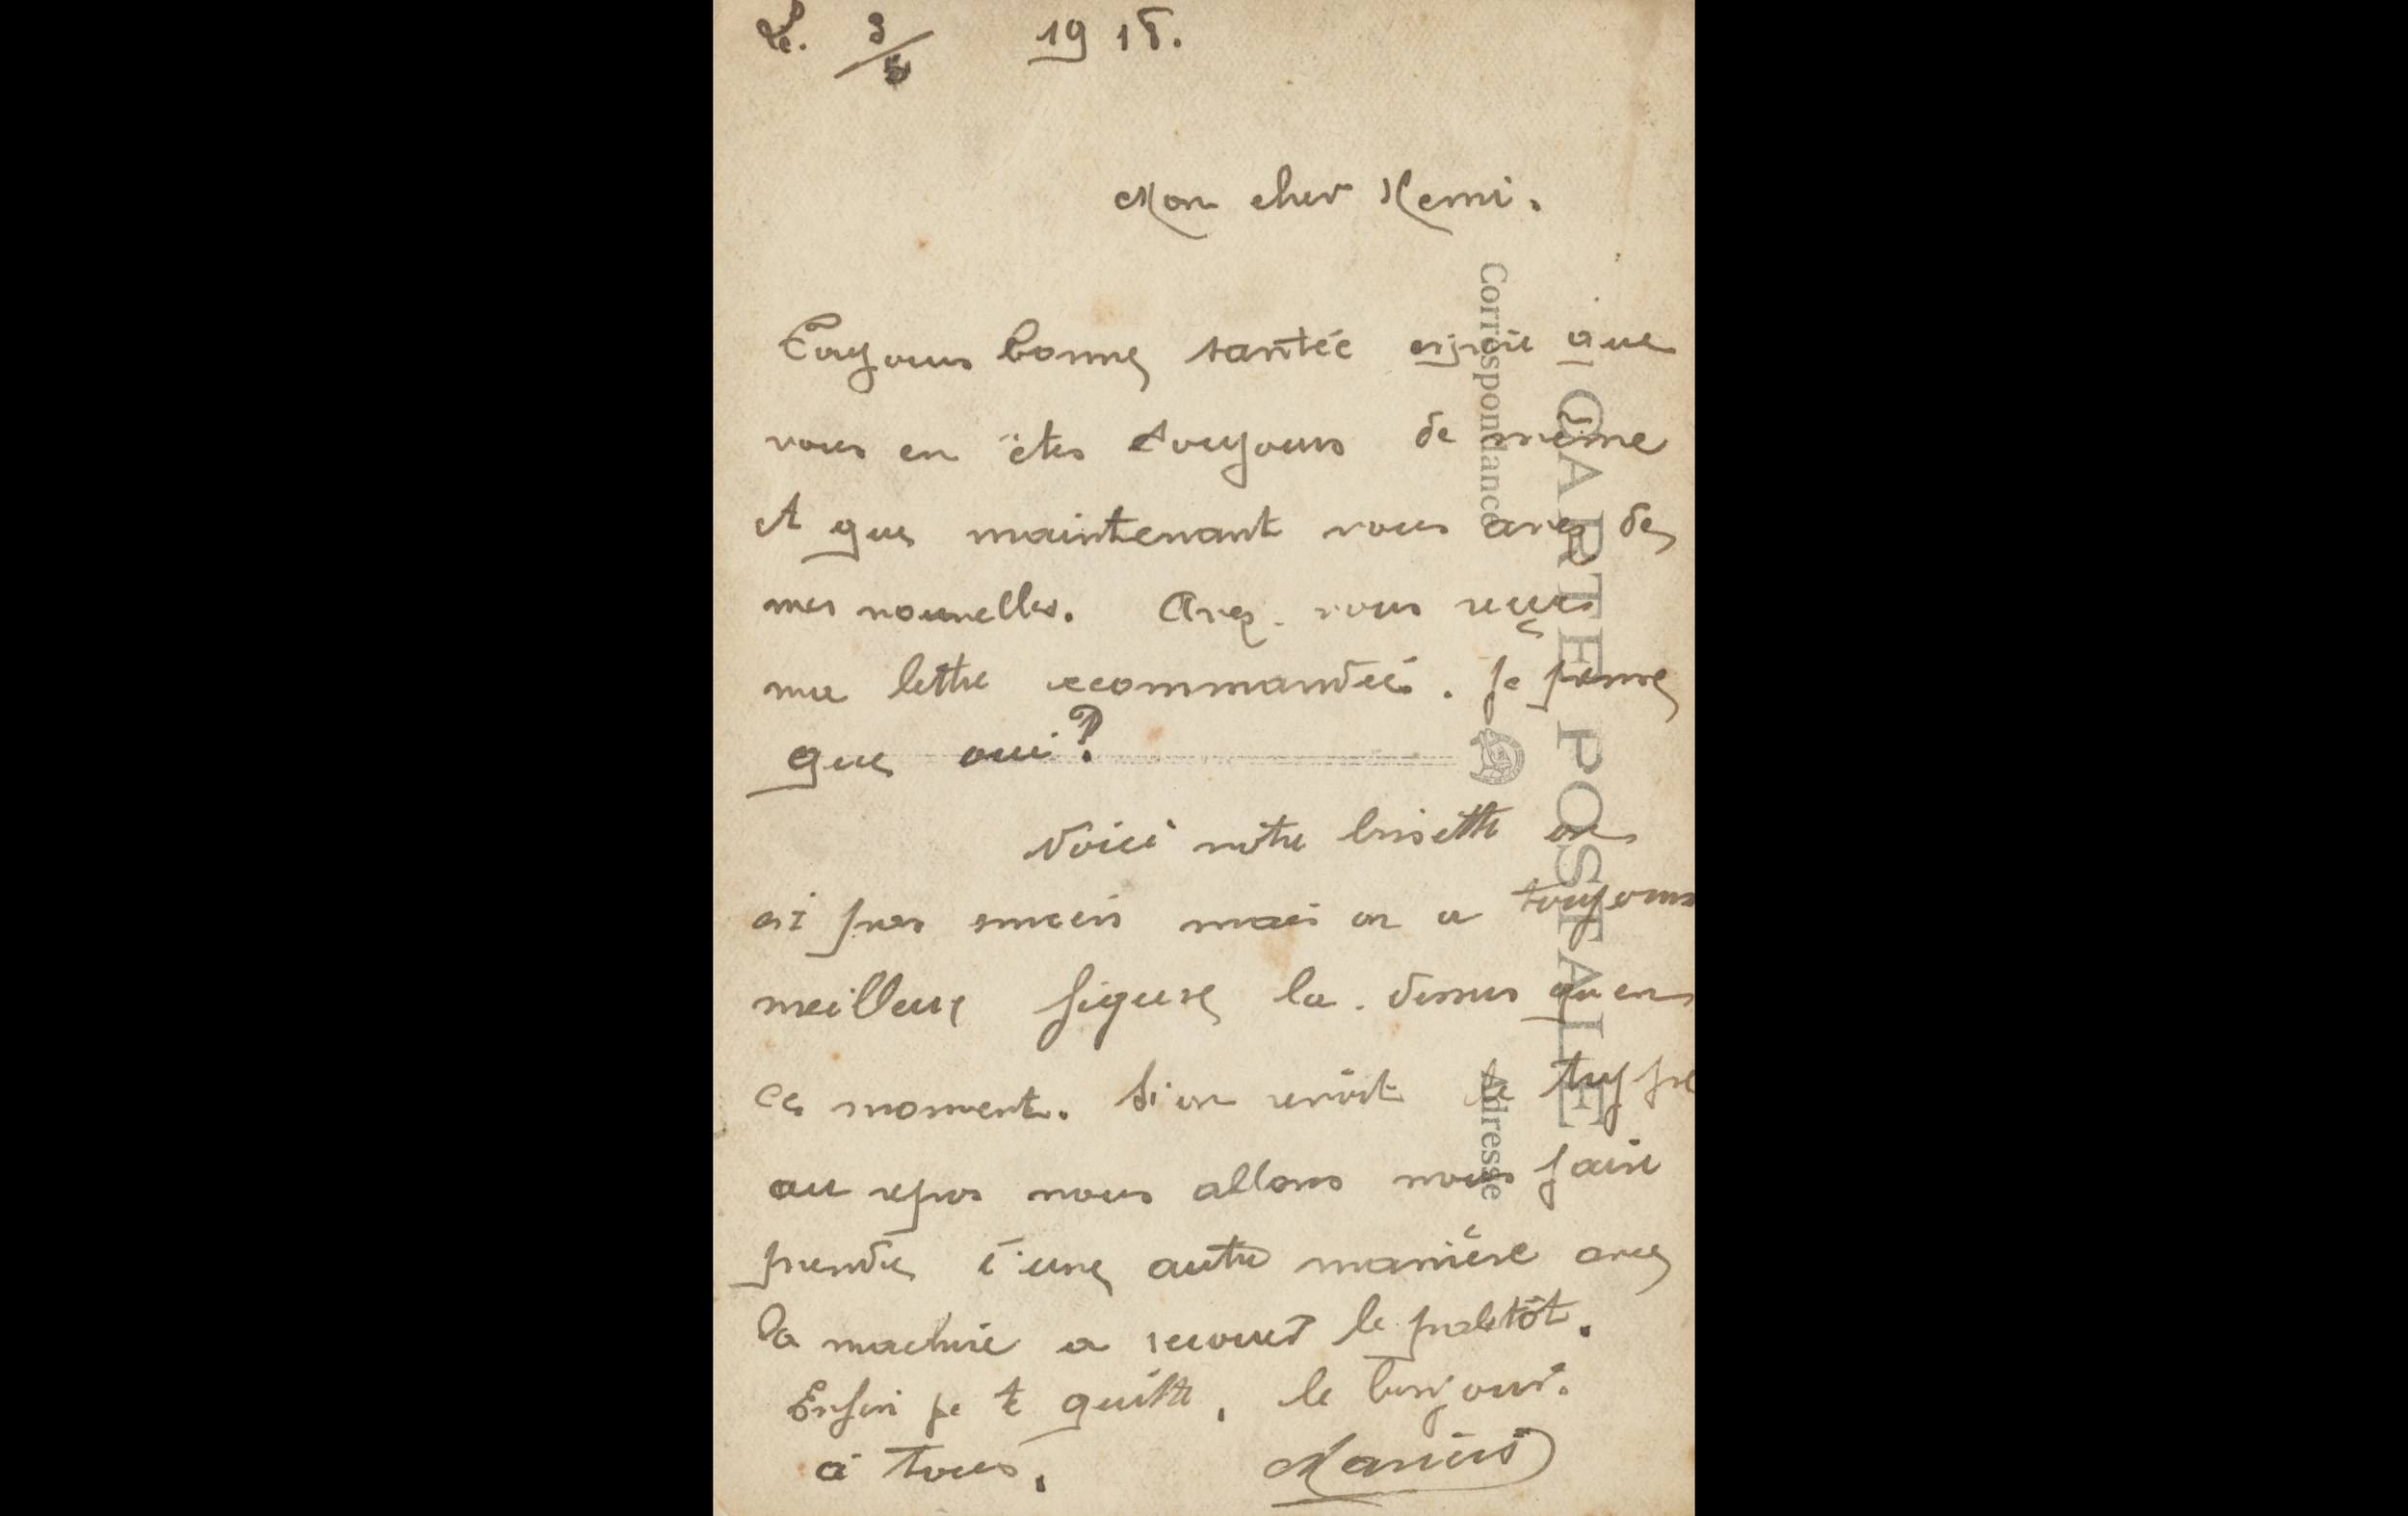 Le. 3/5 1918.
Mon cher Remi.
Toujours bonne santée espère que
vous en êtes toujours de même
et que maintenant vous avez de
mes nouvelles. Avez-vous reçus
ma lettre recommandée. Je pense
que oui?
Voici notre binette on
est pas mais on a toujours
meilleur figure la-dessus qu'en
ce moment. Si on revoit le type
au repos nous allons nous faire
prendre d'une autre manière avec
la machine a secouer le paletôt.
Enfin je te quitte, le bonjour.
à tous.
CARTE POSTALE
Correspondance
Adresse